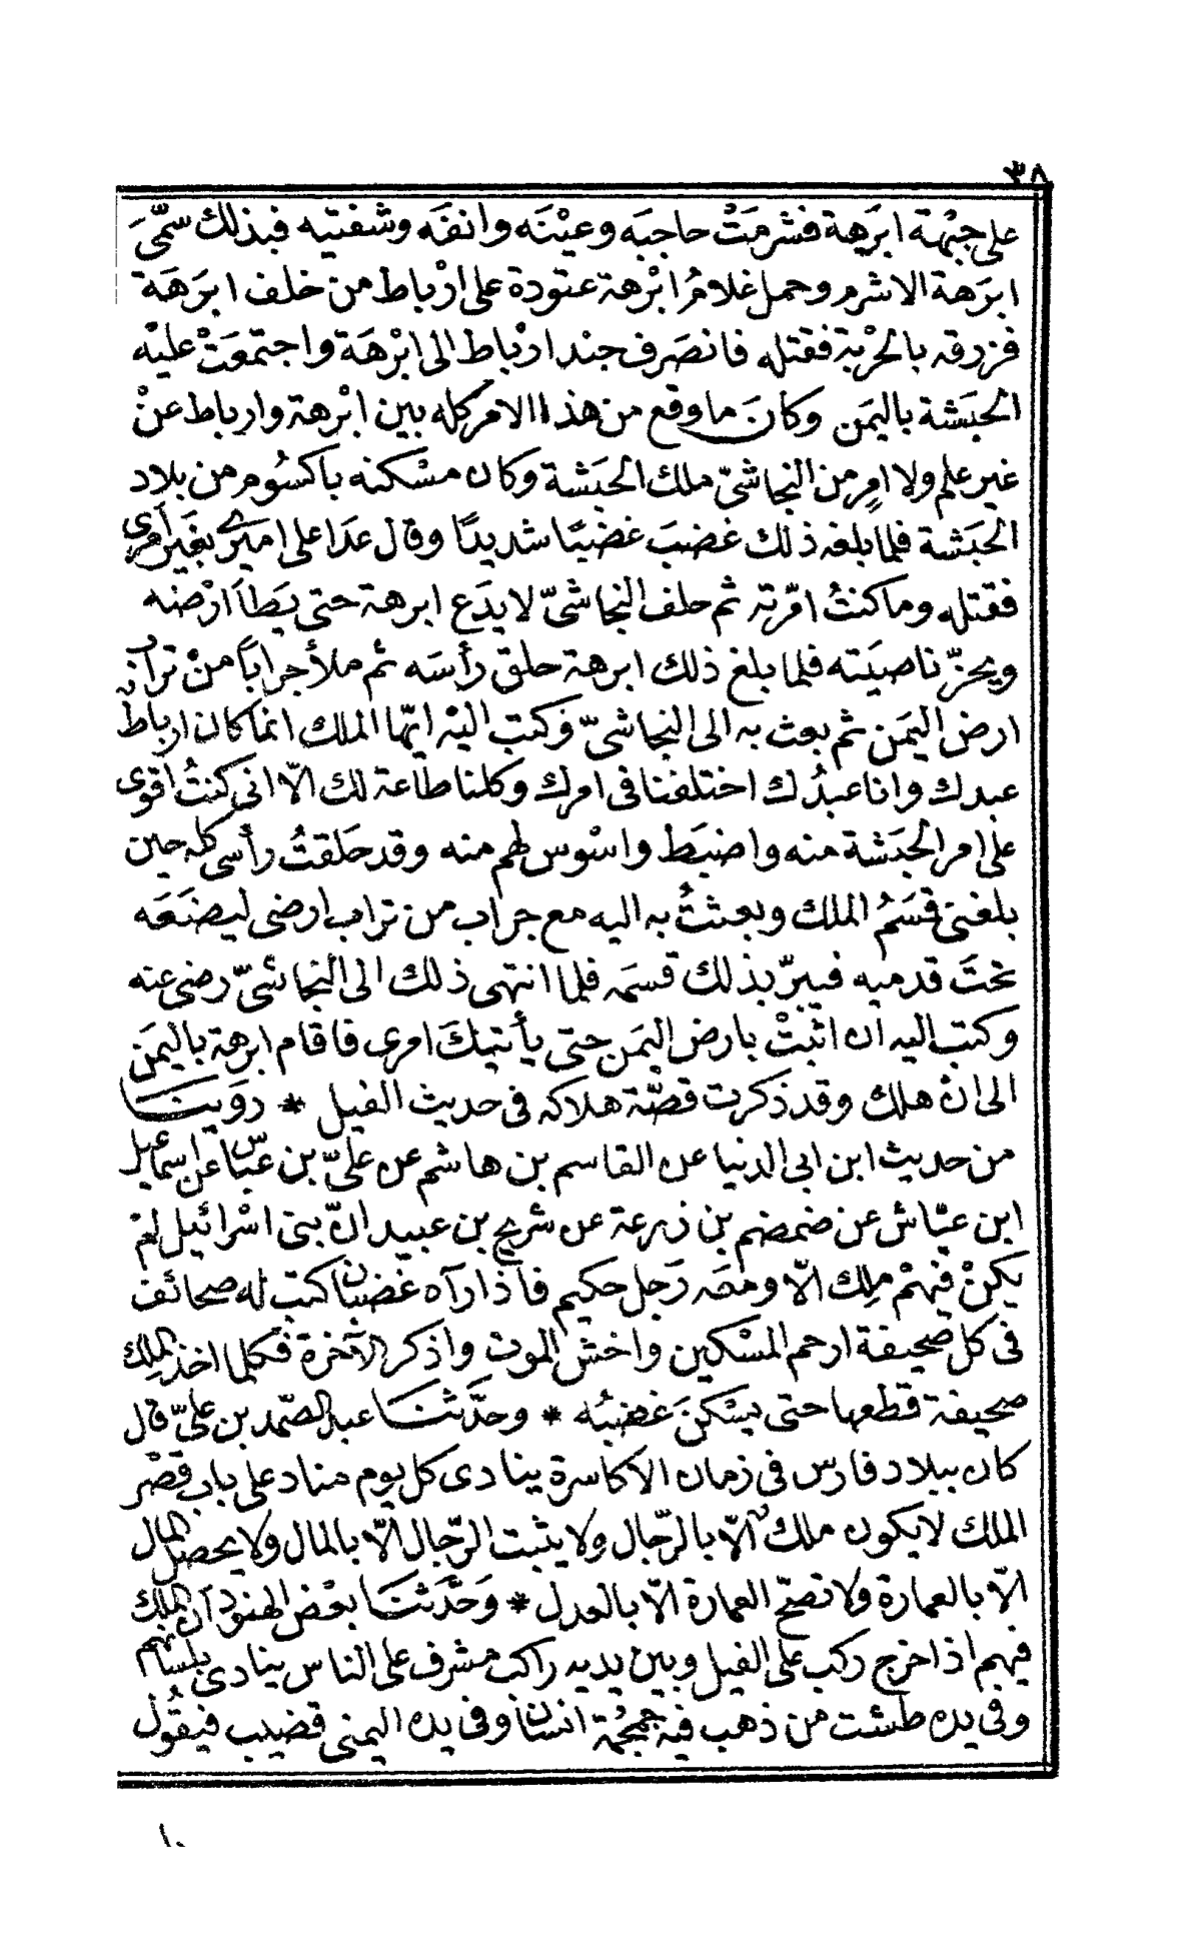 ٣٨
على جبْهة ابرَهة فشرمَتْ حاجبَه وعيْنَه وانفَه وشفتيه فبذلك سمّىَ
ابرَهة الاشرم وحمل غلامُ ابْرهة عتودة على ارْباط من خلف ابرَهَة
فزرقه بالحرْبة فقتله فانصَرف جند ارْباط الى ابْرهَة واجتمعَتْ عليْه
الحبَشة باليمَن وكانَ ما وقع من هذا الامر كله بين ابْرهة وارباط عنْ
غير علم ولا امرٍ من النجاشىّ ملك الحبَشة وكان مسْكنه باكسُوم من بلاد
الحبَشة فلما بلغه ذلك غضبَ غضبًا شديدًا وقال عدَا على اميرى بغَير امرى
فقتله وما كنتُ امّرته ثم حلف النجاشىّ لا يدَع ابرهة حتى يَطأ ارْضه
ويجزّ ناصيَته فلما بلغ ذلك ابرهة حلق رأسَه ثم ملأ جرابًا منْ تراب
ارض اليمَن ثم بعث به الى النجاشىّ وكتب اليْه ايّها الملك انما كان ارباط
عبدك وانا عبدُك اختلفنا فى امرك وكلنا طاعة لك الّا انى كنتُ اقوى
على امر الحبَشة منه واضبَط واسْوس لهم منه وقد حَلقتُ رأسى كله حين
بلغنى قسَمُ الملك وبعثتُ به اليه مع جراب من تراب ارضى ليضَعَه
تحتَ قدميه فيبرّ بذلك قسَمه فلما انتهى ذلك الى النجاشىّ رضى عنه
وكتب اليه أن اثبتْ بارض اليمَن حتى يأتيكَ امرى فاقام ابرهة باليمَن
الى انْ هلك وقد ذكرت قصّة هلاكه فى حديث الفيل * روَينَا
من حديث ابن ابى الدنيا عن القاسم بن هاشم عن علىّ بن عبّاس عن اسماعيل
ابن عيّاش عن ضمضم بن زرعة عن شريح بن عبيد انّ بنى اسْرائيل لمْ
يكنْ فيهمْ ملِك الّا ومعه رَجل حكيم فاذا رآه غضبان كتب له صحائف
فى كل صحيفة ارحم المسْكين واخش الموت واذكر الآخرة فكلما اخذ الملك
صحيفة قطعها حتى يسْكنَ غضبُه * وحدّثنَا عبد الصّمد بن علىّ قال
كان ببلاد فارس فى زمان الاكاسرة ينادى كل يوم مناد على باب قصْر
الملك لا يكون ملك الّا بالرّجال ولا يثبت الرّجال الّا بالمال ولا يحصل المال
الّا بالعمارة ولا تصحّ العمارة الّا بالعدل * وَحدّثنَا بعْض الهنود ان الملك
فيهم اذا خرج ركب على الفيل وبين يديه راكب مشرف على الناس ينادى بلسانهم
وفى يده طشت من ذهب فيه جمجُمة انسان وفى يده اليمنى قضيب فيقُول